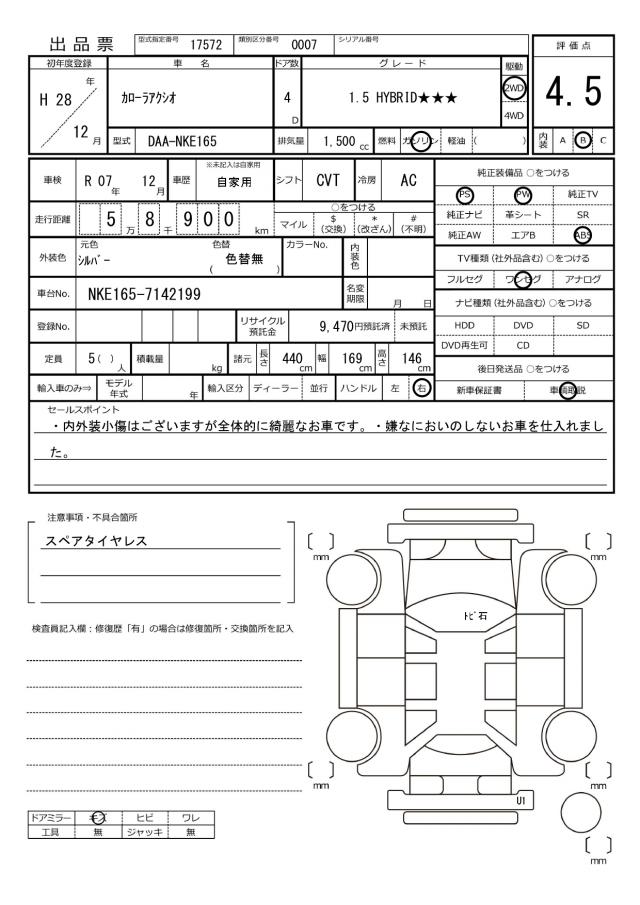 出品票 型式指定番号 17572 類別区分番号 0007 シリアル番号
評価点
4.5
内装 A B C
初年度登録 車名 ドア数 グレード 駆動
H 28 年 12 月
カローラアクシオ 4 D 1.5 HYBRID★★★ 2WD 4WD
型式 DAA-NKE165 排気量 1,500 cc 燃料 ガソリン 軽油 ( )
車検 R 07 年 12 月 車歴 ※未記入は自家用 自家用 シフト CVT 冷房 AC
走行距離 5 万 8 千 9 0 0 km
○をつける
マイル $ (交換) * (改ざん) # (不明)
外装色 元色 シルバー 色替 ( 色替無 ) カラーNo. 内装色
車台No. NKE165-7142199 名変期限 月 日
登録No. リサイクル預託金 9,470円預託済 未預託
定員 5( ) 人 積載量 kg 諸元 長さ 440 cm 幅 169 cm 高さ 146 cm
輸入車のみ⇒ モデル年式 年 輸入区分 ディーラー 並行 ハンドル 左 右
純正装備品 ○をつける
PS PW 純正TV
純正ナビ 革シート SR
純正AW エアB ABS
TV種類 (社外品含む) ○をつける
フルセグ ワンセグ アナログ
ナビ種類 (社外品含む) ○をつける
HDD DVD SD
DVD再生可 CD
後日発送品 ○をつける
新車保証書 車輌取説
セールスポイント
・内外装小傷はございますが全体的に綺麗なお車です。・嫌なにおいのしないお車を仕入れまし
た。
注意事項・不具合箇所
スペアタイヤレス
検査員記入欄：修復歴「有」の場合は修復箇所・交換箇所を記入
ドアミラー キズ ヒビ ワレ
工具 無 ジャッキ 無
[ ] mm
[ ] mm
トビ石
[ ] mm
[ ] mm
U1
[ ] mm